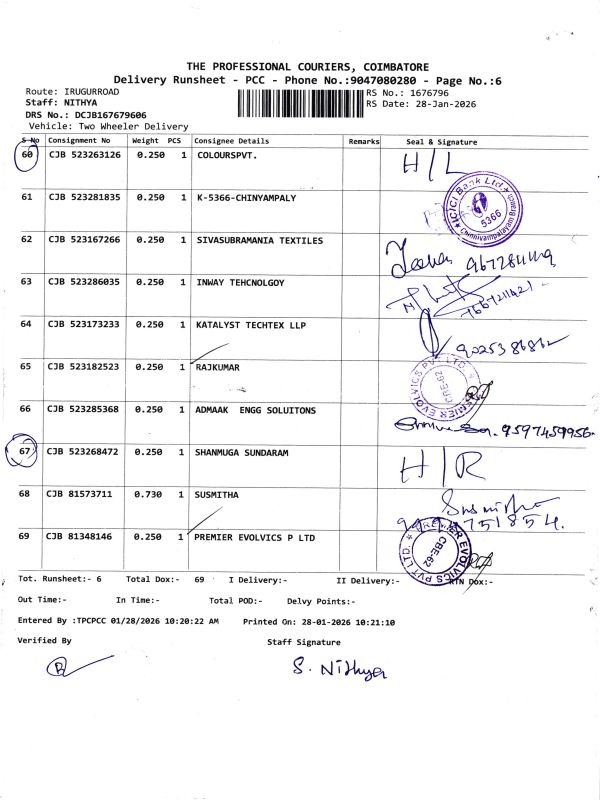 THE PROFESSIONAL COURIERS, COIMBATORE
Delivery Runsheet - PCC - Phone No.:9047080280 - Page No.:6
Route: IRUGURROAD RS No.: 1676796
Staff: NITHYA RS Date: 28-Jan-2026
DRS No.: DCJB167679606
Vehicle: Two Wheeler Delivery
S No Consignment No Weight PCS Consignee Details Remarks Seal & Signature
60 CJB 523263126 0.250 1 COLOURSPVT. H/L
61 CJB 523281835 0.250 1 K-5366-CHINYAMPALY ICICI Bank Ltd. 5366 Chinniyampalayam Branch
62 CJB 523167266 0.250 1 SIVASUBRAMANIA TEXTILES
63 CJB 523286035 0.250 1 INWAY TEHCNOLGOY
64 CJB 523173233 0.250 1 KATALYST TECHTEX LLP
65 CJB 523182523 0.250 1 RAJKUMAR PREMIER EVOLVICS PVT LTD. CBE-62
66 CJB 523285368 0.250 1 ADMAAK ENGG SOLUITONS 9597459956
67 CJB 523268472 0.250 1 SHANMUGA SUNDARAM H/R
68 CJB 81573711 0.730 1 SUSMITHA Susmitha
69 CJB 81348146 0.250 1 PREMIER EVOLVICS P LTD PREMIER EVOLVICS PVT LTD. CBE-62
Tot. Runsheet:- 6 Total Dox:- 69 I Delivery:- II Delivery:- RTN Dox:-
Out Time:- In Time:- Total POD:- Delvy Points:-
Entered By :TPCPCC 01/28/2026 10:20:22 AM Printed On: 28-01-2026 10:21:10
Verified By Staff Signature
R S. Nithya